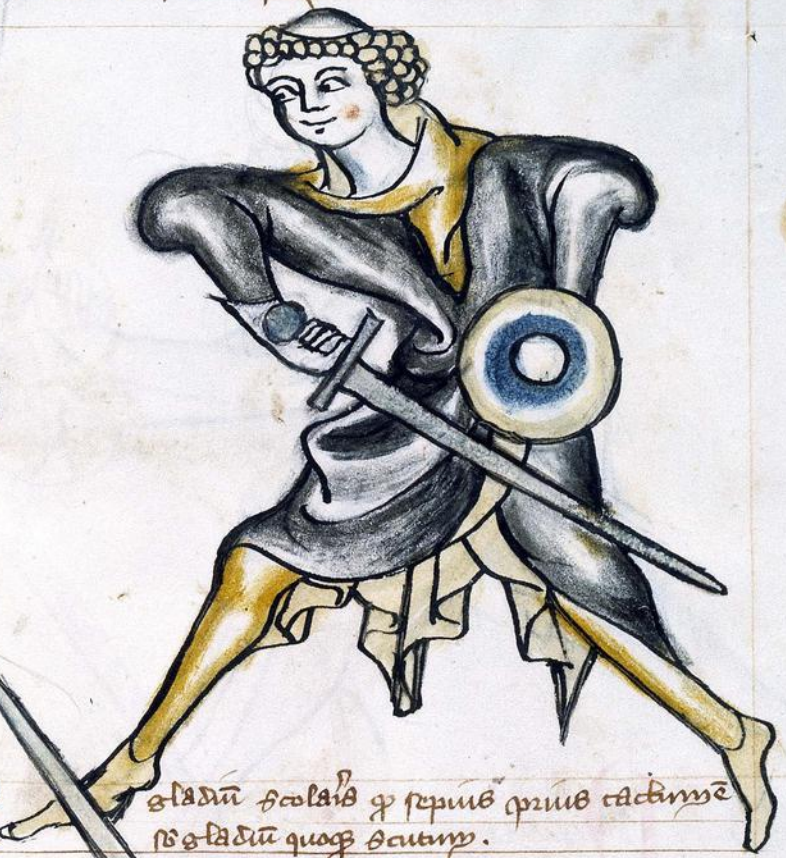 gladiū scolaris ꝙ sepius prius tactum ē
gladiū quoqꝫ scutum.